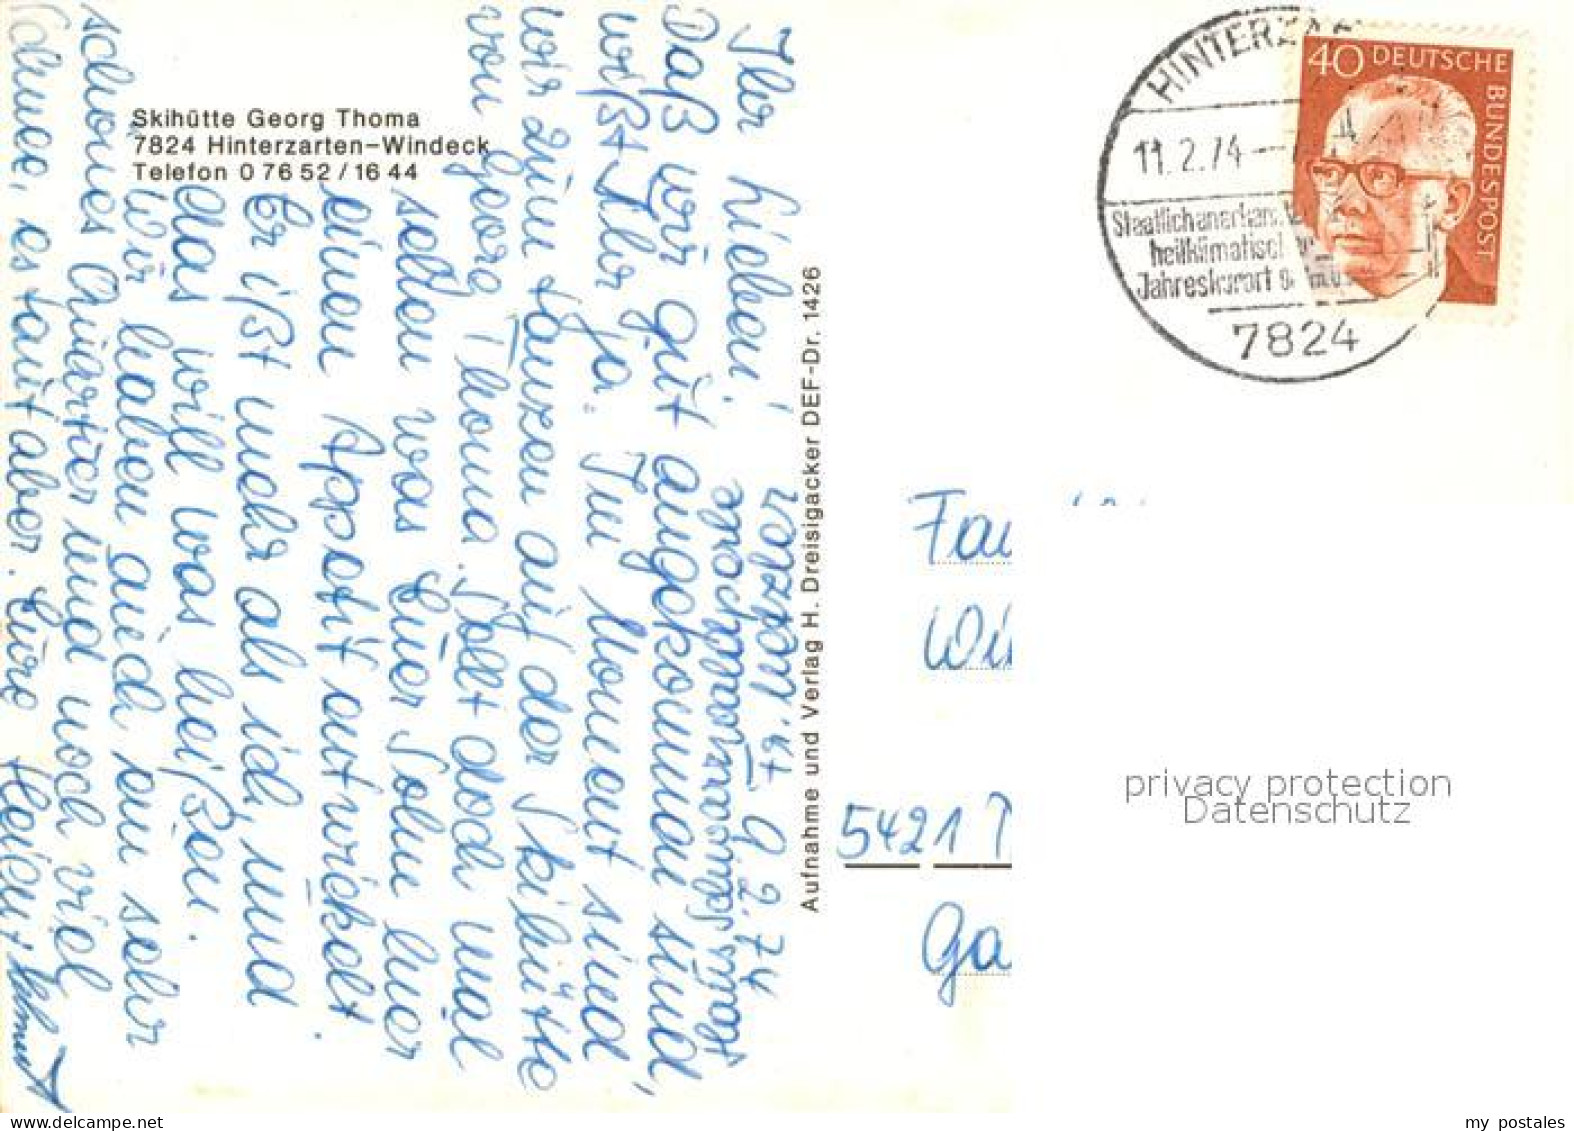 Skihütte Georg Thoma
7824 Hinterzarten-Windeck
Telefon 0 76 52 / 16 44
Ihr Lieben!
Daß wir gut angekommen sind,
wißt Ihr ja. Im Moment sind
wir zum tanzen auf der Skihütte
von Georg Thoma. Sollt doch mal
sehen was Euer Sohn hier
einen Appetit entwickelt.
Er ißt mehr als ich, und
das will was heißen.
Wir haben auch ein sehr
schönes Quartier und noch viel
Schnee, es taut aber. Eure Heidi +
9.2.74
Aufnahme und Verlag H. Dreisigacker DEF-Dr. 1426
HINTERZAR
11.2.74
Staatlich anerkan
heilklimatisch
Jahreskurort
7824
40 DEUTSCHE BUNDESPOST
Fa
Wi
5421
Ga
privacy protection
Datenschutz
my postales